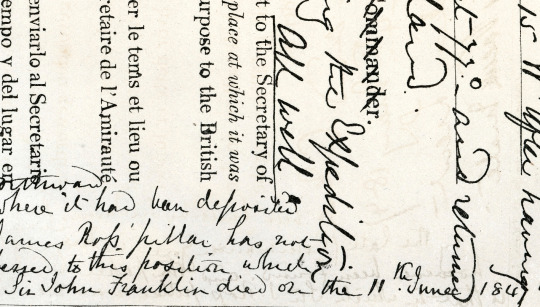 15 W After having
t 77° and return
land.
ommander.
ng the Expedition.
All well
t to the Secretary of
place at which it was
urpose to the British
er le tems et lieu ou
retaire de l'Amirauté
enviarlo al Secretario
tempo y del lugar en
orthward
where it had been deposited
James Ross' pillar has not
to this position which
Sir John Franklin died on the 11th June 184